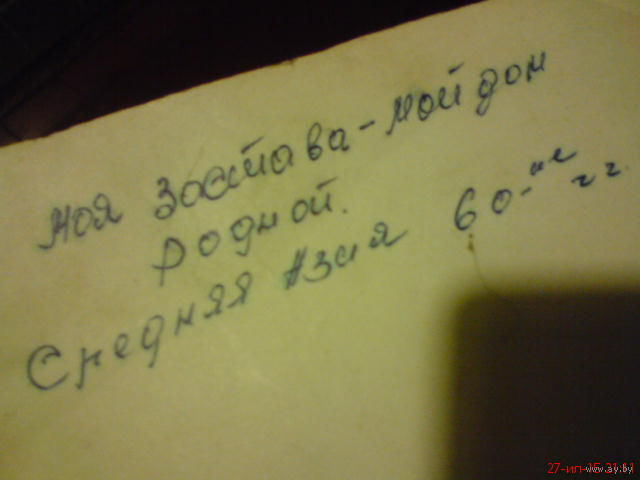 Моя застава - мой дом
родной.
Средняя Азия 60-ые гг.
www.ay.by